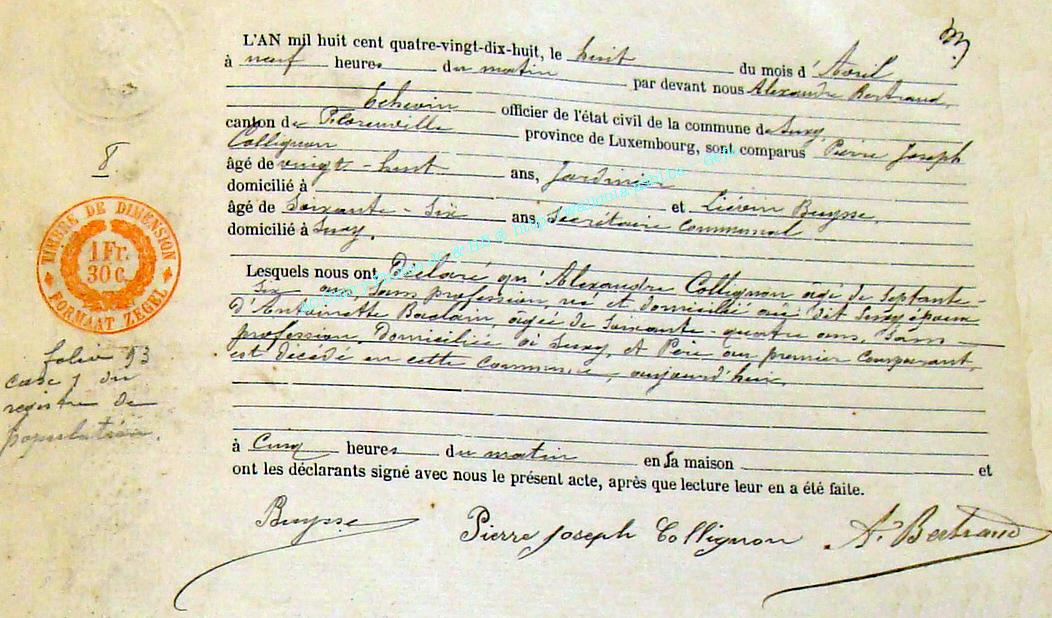 L'AN mil huit cent quatre-vingt-dix-huit, le huit du mois d'Avril
à neuf heures du matin par devant nous Alexandre Bertrand,
Echevin officier de l'état civil de la commune de Suxy
canton de Florenville province de Luxembourg, sont comparus Pierre Joseph
Collignon
âgé de vingt-huit ans, Jardinier
domicilié à et Liévin Buysse,
âgé de Soixante-Six ans, Secrétaire Communal
domicilié à Suxy.
Lesquels nous ont Déclaré qu'Alexandre Collignon, âgé de Septante-
Six ans, Sans profession, né et domicilié au dit Suxy, époux
d'Antoinette, âgée de Soixante-quatre ans, Sans
profession, Domiciliée à Suxy, et Père au premier Comparant,
est décédé en cette commune, aujourd'hui,
à Cinq heures du matin en sa maison et
ont les déclarants signé avec nous le présent acte, après que lecture leur en a été faite.
Buysse Pierre Joseph Collignon A. Bertrand
8.
TIMBRE DE DIMENSION
1 Fr.
30 c.
FORMAAT ZEGEL
folio 93
case 7 du
registre de
population.